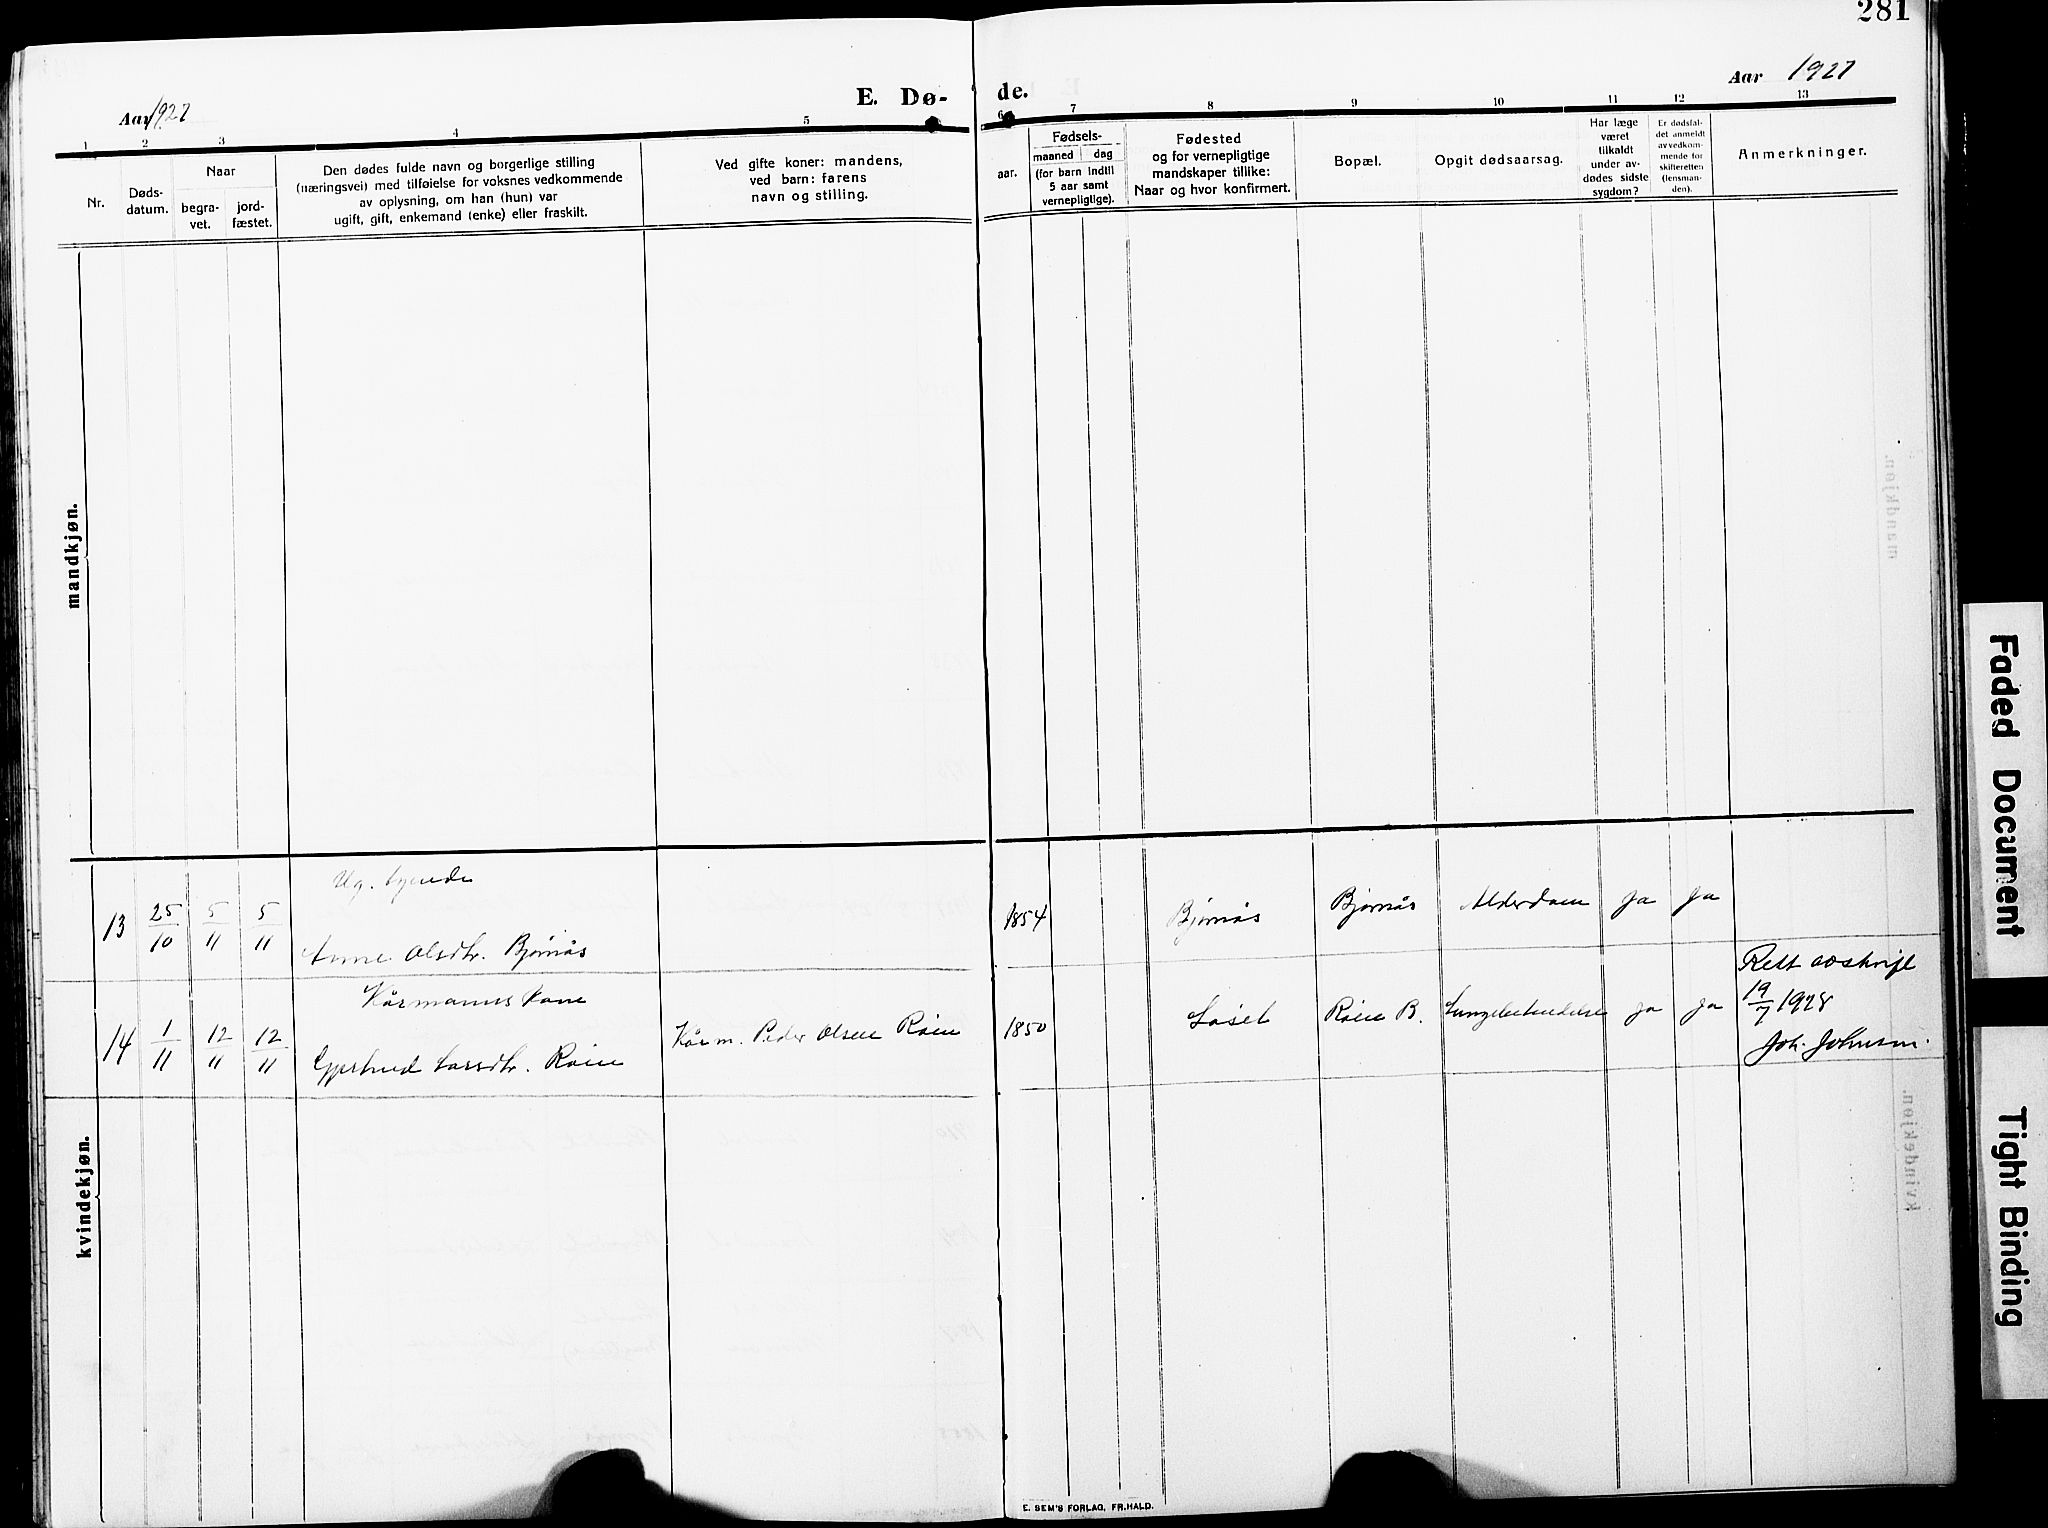 281
Aar 1927
E. Dø-
de.
Aar 1927
1 2 3 4 5
6 7 8 9 10 11 12 13
Nr.
Døds-
datum.
Naar
begra-
vet.
jord-
fæstet.
Den dødes fulde navn og borgerlige stilling
(næringsvei) med tilføielse for voksnes vedkommende
av oplysning, om han (hun) var
ugift, gift, enkemand (enke) eller fraskilt.
Ved gifte koner: mandens,
ved barn: farens
navn og stilling.
Fødsels-
aar.
maaned dag
(for barn indtil
5 aar samt
vernepligtige).
Fødested
og for vernepligtige
mandskaper tillike:
Naar og hvor konfirmert.
Bopæl.
Opgit dødsaarsag.
Har læge
været
tilkaldt
under av-
dødes sidste
sygdom?
Er dødsfal-
det anmeldt
av vedkom-
mende for
skifteretten
(lensman-
den).
Anmerkninger.
mandkjøn.
Ug.
13 25/10 5/11 5/11 Anne Olsdtr. Bjørnås 1854 Bjørnås Bjørnås Alderdom ja ja
Kårmanns Kone
14 1/11 12/11 12/11 Gjertrud Larsdtr. Røen Kårm. Peder Olsen Røen 1850 Løset Røen B. Lungebetendelse ja ja
Rett avskrift
19/7 1928
Joh. Johnsen.
kvindekjøn.
E. SEM'S FORLAG, FR.HALD.
Faded Document
Tight Binding